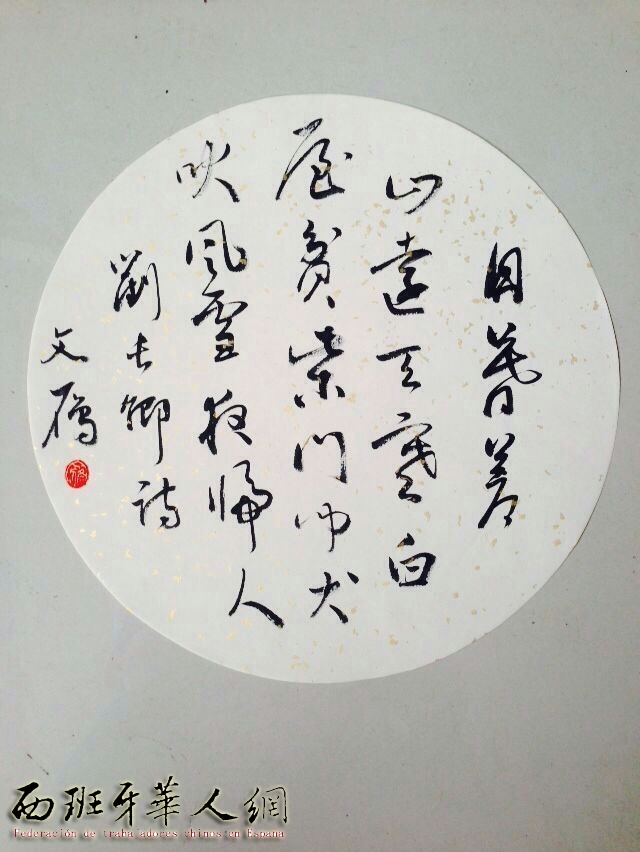 日暮蒼
山遠天寒白
屋貧柴門聞犬
吠風雪夜歸人
劉長卿詩
文
西班牙華人網
Federación de traba adores chinos en Espana